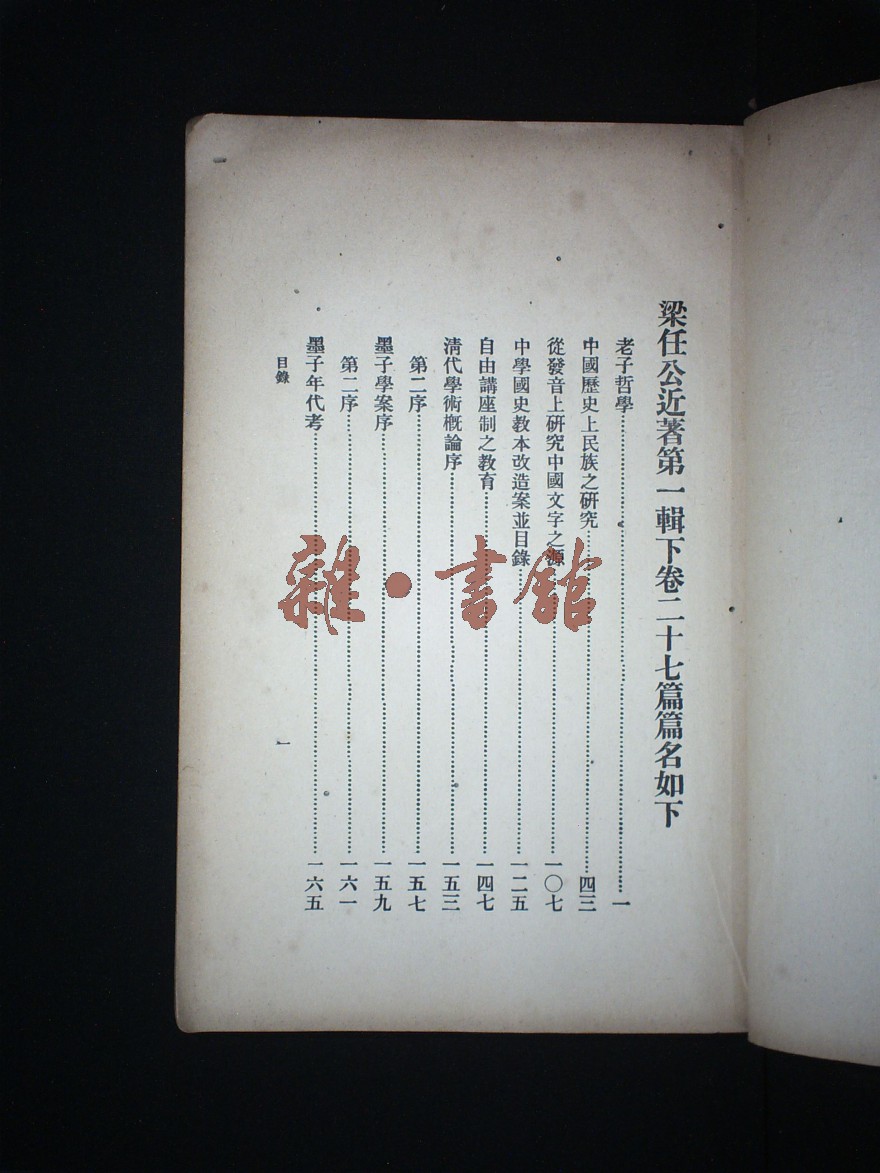 梁任公近著第一輯下卷二十七篇篇名如下
老子哲學……一
中國歷史上民族之研究……四三
從發音上研究中國文字之源……一〇七
中學國史教本改造案並目錄……一二五
自由講座制之教育……一四七
清代學術概論序……一五三
第二序……一五七
墨子學案序……一五九
第二序……一六一
墨子年代考……一六五
目錄
一
雜·書館